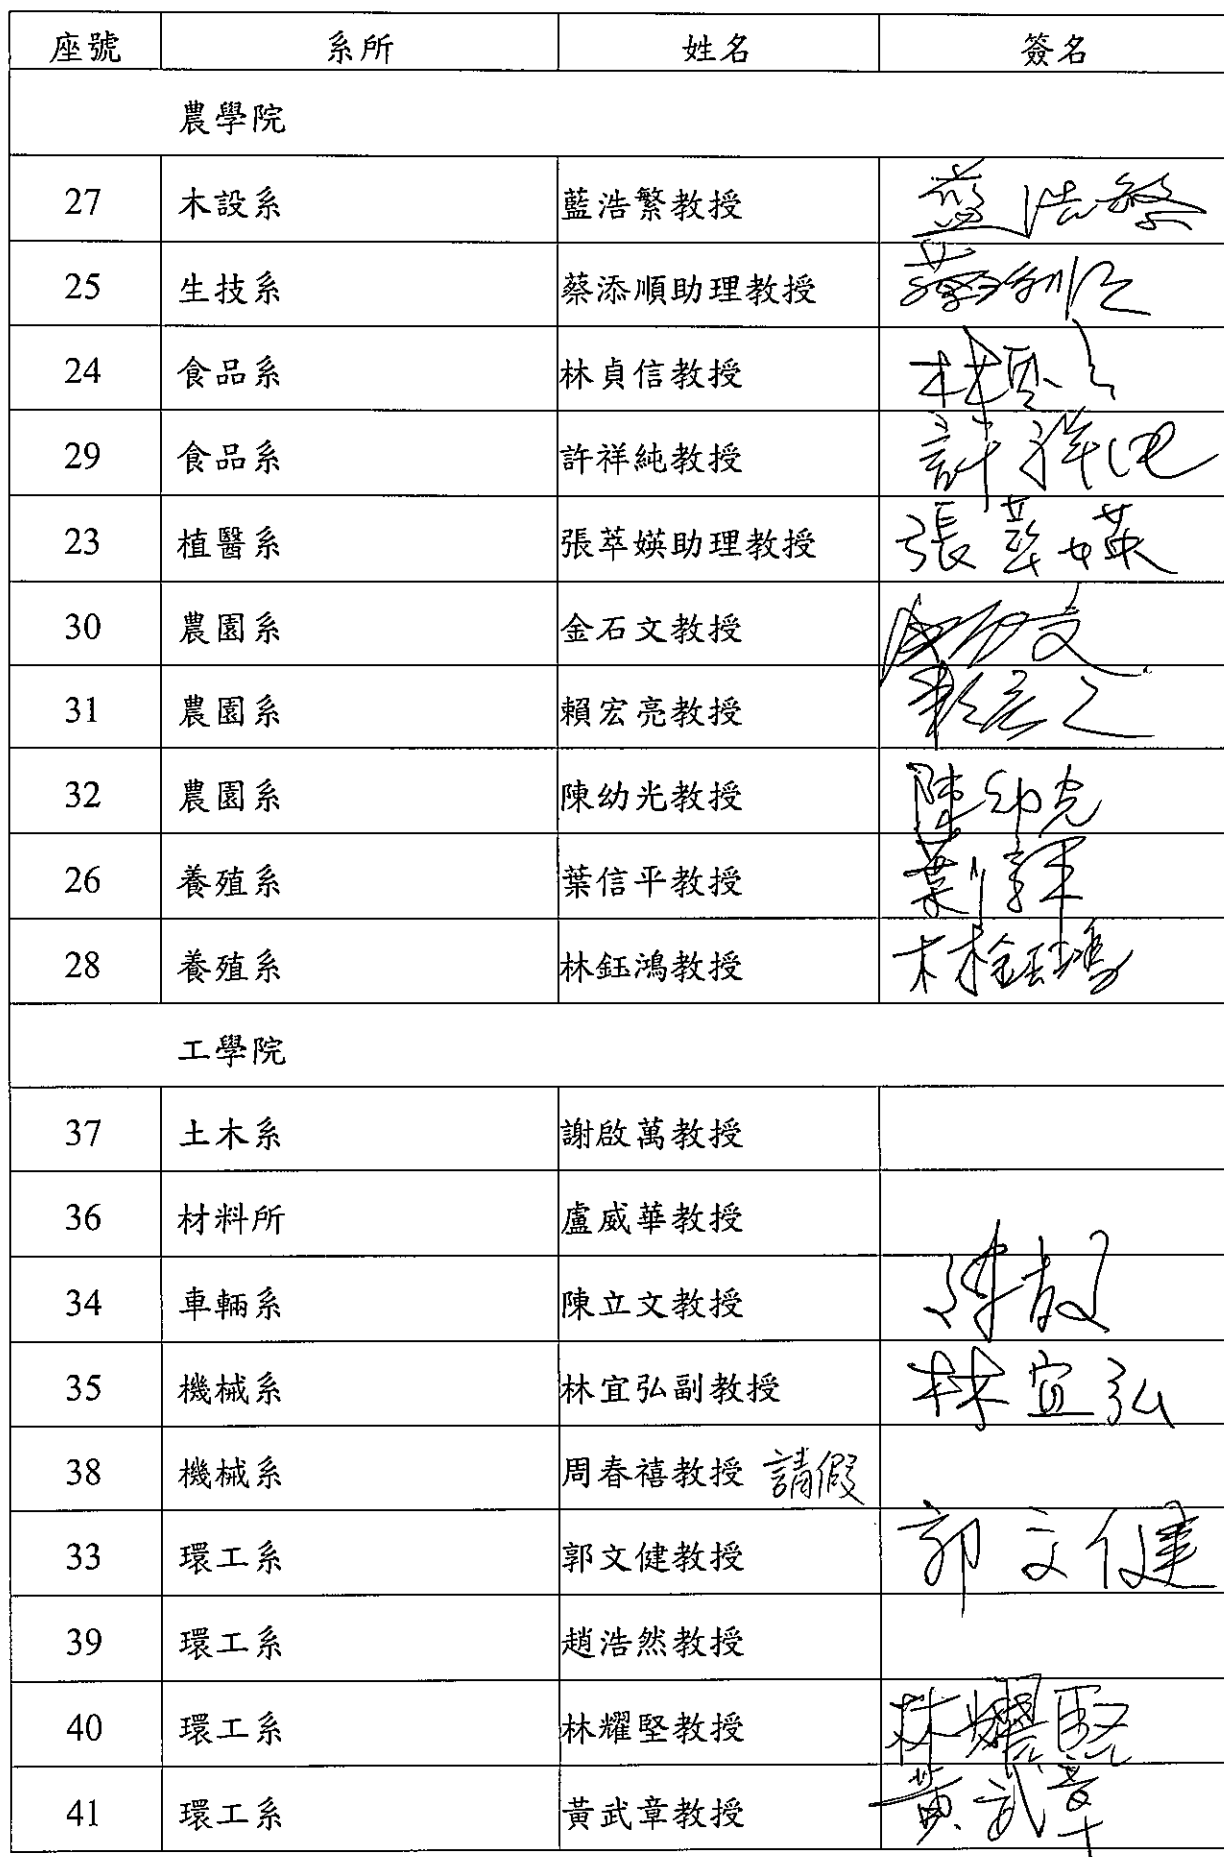 座號 系所 姓名 簽名
農學院
27 木設系 藍浩繁教授 藍浩繁
25 生技系 蔡添順助理教授
24 食品系 林貞信教授 林貞信
29 食品系 許祥純教授 許祥純
23 植醫系 張萃媖助理教授 張萃媖
30 農園系 金石文教授 金石文
31 農園系 賴宏亮教授
32 農園系 陳幼光教授 陳幼光
26 養殖系 葉信平教授 葉信平
28 養殖系 林鈺鴻教授 林鈺鴻
工學院
37 土木系 謝啟萬教授
36 材料所 盧威華教授
34 車輛系 陳立文教授 陳立文
35 機械系 林宜弘副教授 林宜弘
38 機械系 周春禧教授 請假
33 環工系 郭文健教授 郭文健
39 環工系 趙浩然教授
40 環工系 林耀堅教授 林耀堅
41 環工系 黃武章教授 黃武章